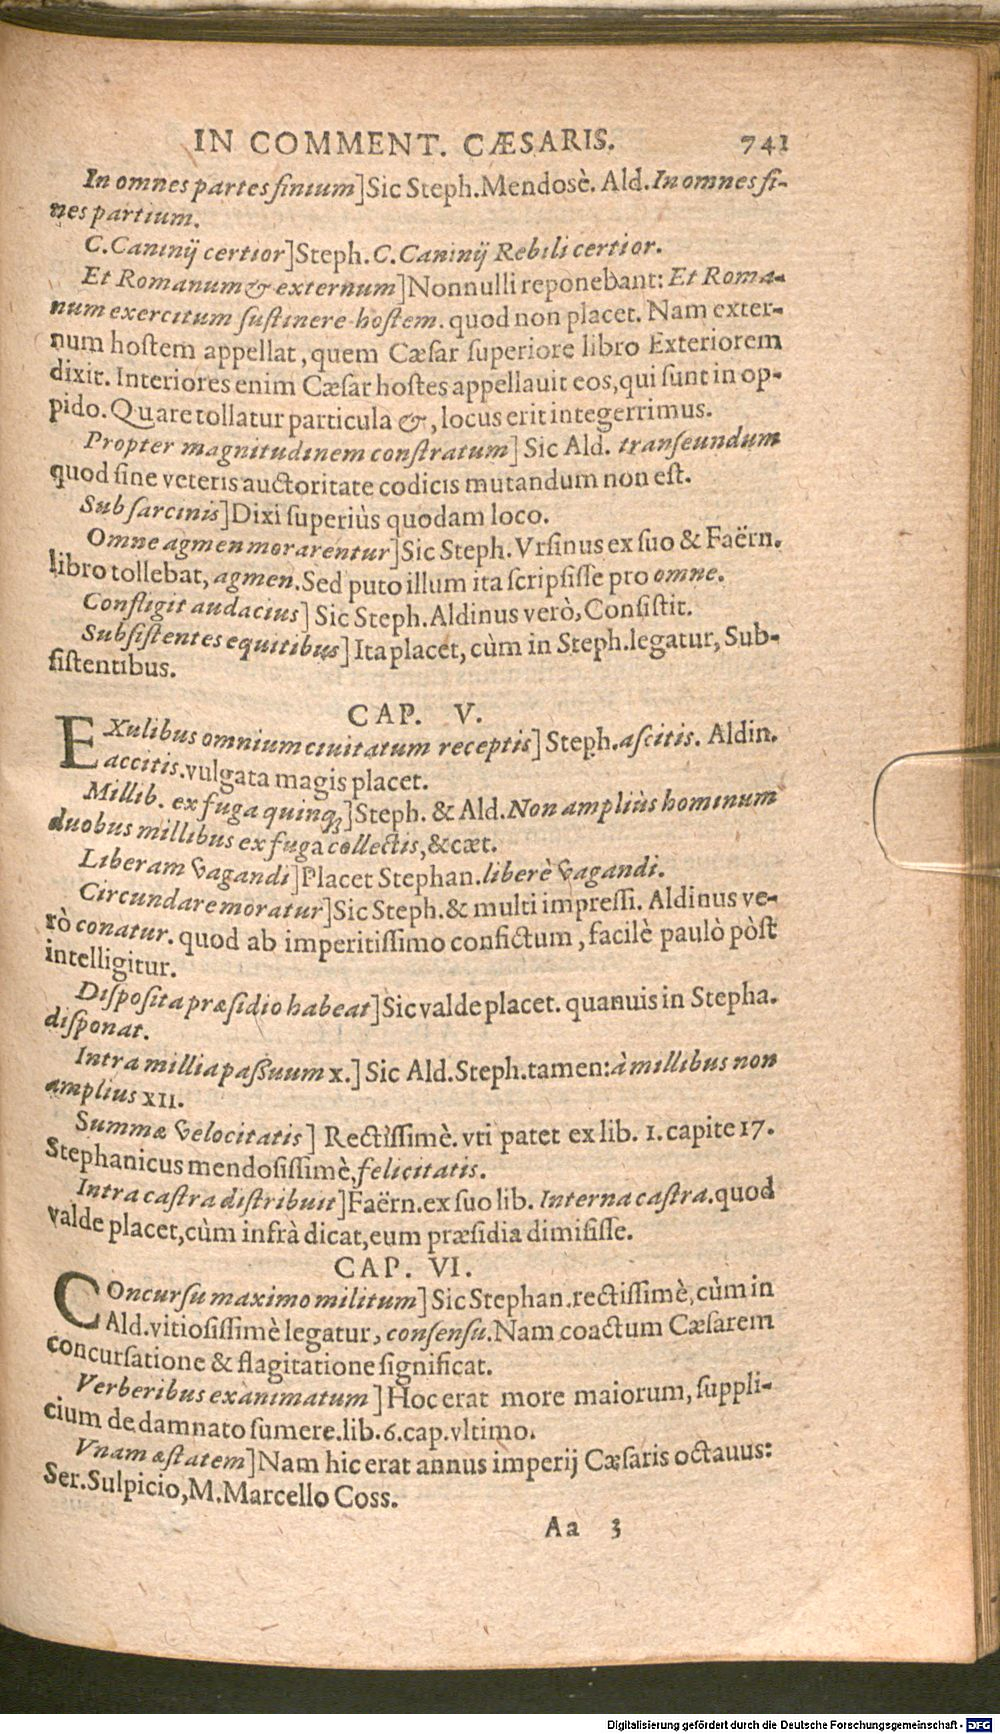 IN COMMENT. CÆSARIS. 741
In omnes partes finium] Sic Steph. Mendosè. Ald. In omnes fi-
nes partium.
C. Caninij certior] Steph. C. Caninij Rebili certior.
Et Romanum & externum] Nonnulli reponebant: Et Roma-
num exercitum ſuſtinere hoſtem. quod non placet. Nam exter-
num hoſtem appellat, quem Cæſar ſuperiore libro Exteriorem
dixit. Interiores enim Cæſar hoſtes appellauit eos, qui ſunt in op-
pido. Quare tollatur particula &, locus erit integerrimus.
Propter magnitudinem conſtratum] Sic Ald. tranſeundum
quod ſine veteris auctoritate codicis mutandum non eſt.
Sub ſarcinis] Dixi ſuperiùs quodam loco.
Omne agmen morarentur] Sic Steph. Vrſinus ex ſuo & Faërn.
libro tollebat, agmen. Sed puto illum ita ſcripſiſſe pro omne.
Confligit audacius] Sic Steph. Aldinus verò, Conſiſtit.
Subſiſtentes equitibus] Ita placet, cùm in Steph. legatur, Sub-
ſiſtentibus.
CAP. V.
EXulibus omnium ciuitatum receptis] Steph. aſcitis. Aldin.
accitis. vulgata magis placet.
Millib. ex fuga quinq;] Steph. & Ald. Non ampliùs hominum
duobus millibus ex fuga collectis, &cæt.
Liberam vagandi] Placet Stephan. liberè vagandi.
Circundare moratur] Sic Steph. & multi impreſſi. Aldinus ve-
rò conatur. quod ab imperitiſſimo confictum, facilè paulò pòſt
intelligitur.
Diſpoſita præſidio habeat] Sic valde placet. quanuis in Stepha.
diſponat.
Intra millia paſſuum x.] Sic Ald. Steph. tamen: à millibus non
amplius XII.
Summæ velocitatis] Rectiſſimè. vti patet ex lib. 1. capite 17.
Stephanicus mendoſiſſimè, felicitatis.
Intra caſtra diſtribuit] Faërn. ex ſuo lib. Interna caſtra. quod
valde placet, cùm infrà dicat, eum præſidia dimiſiſſe.
CAP. VI.
COncurſu maximo militum] Sic Stephan. rectiſſimè, cùm in
Ald. vitioſiſſimè legatur, conſenſu. Nam coactum Cæſarem
concurſatione & flagitatione ſignificat.
Verberibus exanimatum] Hoc erat more maiorum, ſuppli-
cium de damnato ſumere. lib. 6. cap. vltimo.
Vnam æſtatem] Nam hic erat annus imperij Cæſaris octauus:
Ser. Sulpicio, M. Marcello Coss.
Aa 3
Digitalisierung gefördert durch die Deutsche Forschungsgemeinschaft - DFG